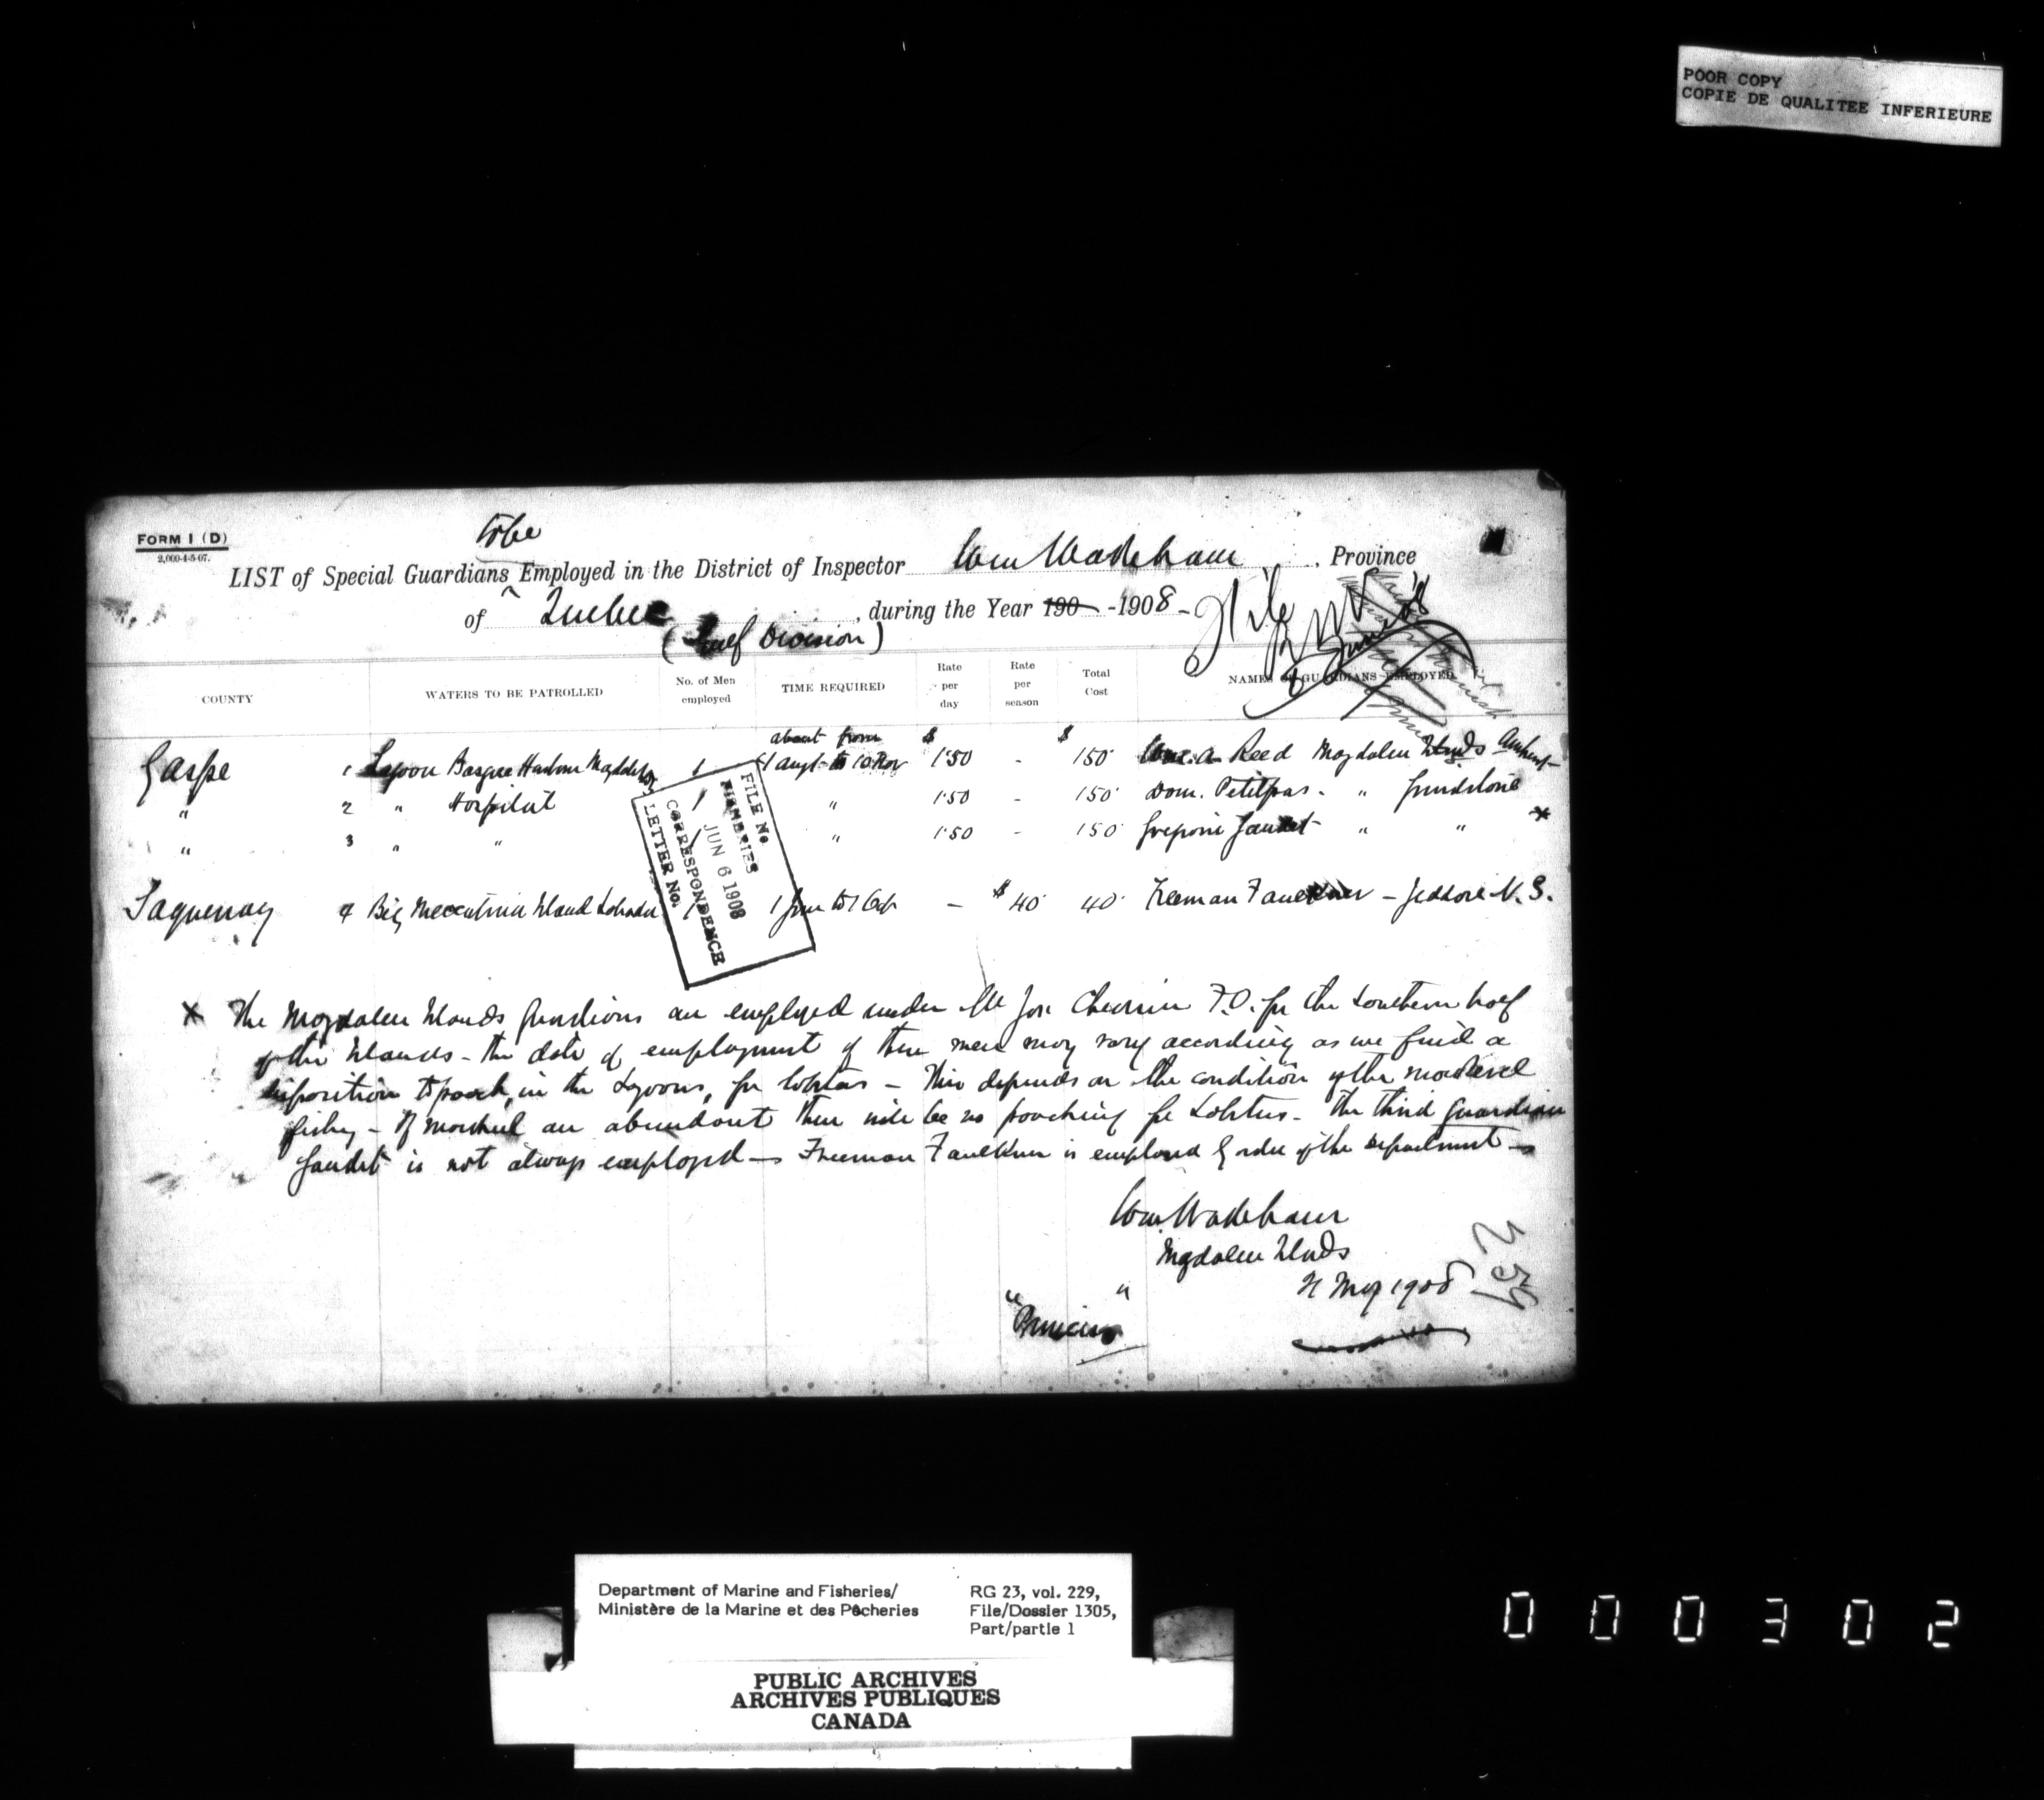 POOR COPY
COPIE DE QUALITEE INFERIEURE
FORM 1 (D)
2,000-4-5-07.
to be
LIST of Special Guardians Employed in the District of Inspector Wm Wakeham, Province
of Quebec, during the Year 190 - 1908 -
(Gulf Division)
File
COUNTY WATERS TO BE PATROLLED No. of Men employed TIME REQUIRED Rate per day Rate per season Total Cost NAMES OF GUARDIANS EMPLOYED
about from
Gaspe 1 Lagoon Basque Harbour Magdalens 1 1 augt to 10 Nov $ 1.50 - $ 150. Wm. A. Reed Magdalen Islands Amherst
" 2 " Hospital 1 " 1.50 - 150. Dom. Petitpas - " Grindstone
" 3 " " 1 " 1.50 - 150. Gaudet " " x
Saguenay 4 Big Meccatina Island Labrador 1 1 June to 1 - $ 40. 40. Freeman Faulkner - Jeddore N. S.
FILE No.
FISHERIES
JUN 6 1908
CORRESPONDENCE
LETTER No.
x The Magdalen Islands Guardians are employed under Mr Jos. F.O. for the Southern half
of the Islands - the date of employment of these men may vary according as we find a
disposition to poach, in the Lagoons, for lobsters - This depends on the condition of the mackerel
fishery - If mackerel are abundant there will be no poaching for Lobsters - The third guardian
Gaudet is not always employed - Freeman Faulkner is employed by order of the department -
Wm. Wakeham
Magdalen Islands
May 1908
239
"Princess"
Department of Marine and Fisheries/
Ministère de la Marine et des Pêcheries
RG 23, vol. 229,
File/Dossier 1305,
Part/partie 1
PUBLIC ARCHIVES
ARCHIVES PUBLIQUES
CANADA
000302